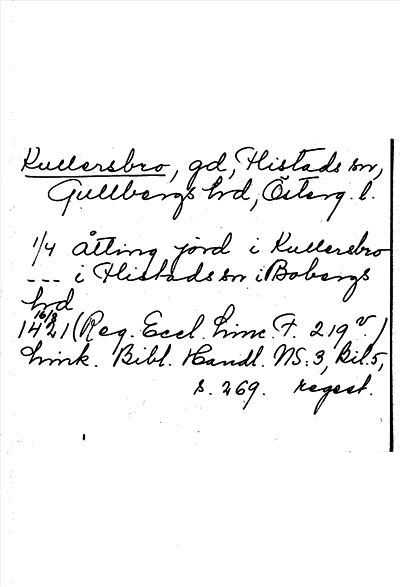 Kullersbro, gd, Flistads sn,
Gullbergs hrd, Österg. l.
1/4 åtting jord i Kullersbro
--- i Flistads sn i Bobergs
hrd
16/8
1421 (Reg. Eccl. Linc. F. 219 v.)
Link. Bibl. Handl. NS: 3, Bil. 5,
s. 269. regest.